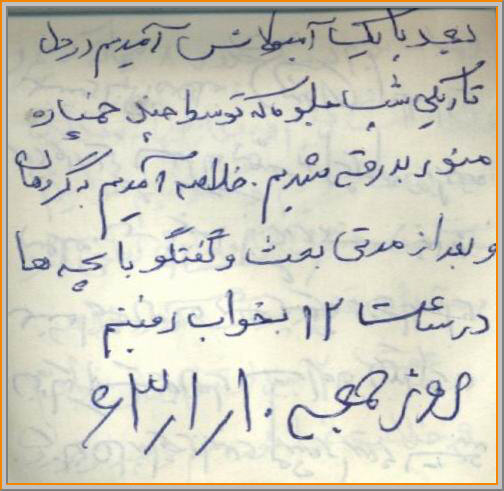 بعد با یک آمبولانس آمدیم در دل
تاریکی شب جلو ماکه توسط چند خمپاره
منور بدرقه شدیم. خلاصه آمدیم به گردان
و بعد از مدتی بحث و گفتگو با بچه ها
در ساعت ۱۲ بخواب رفتیم
روز جمعه ۶۳/۱/۱۰